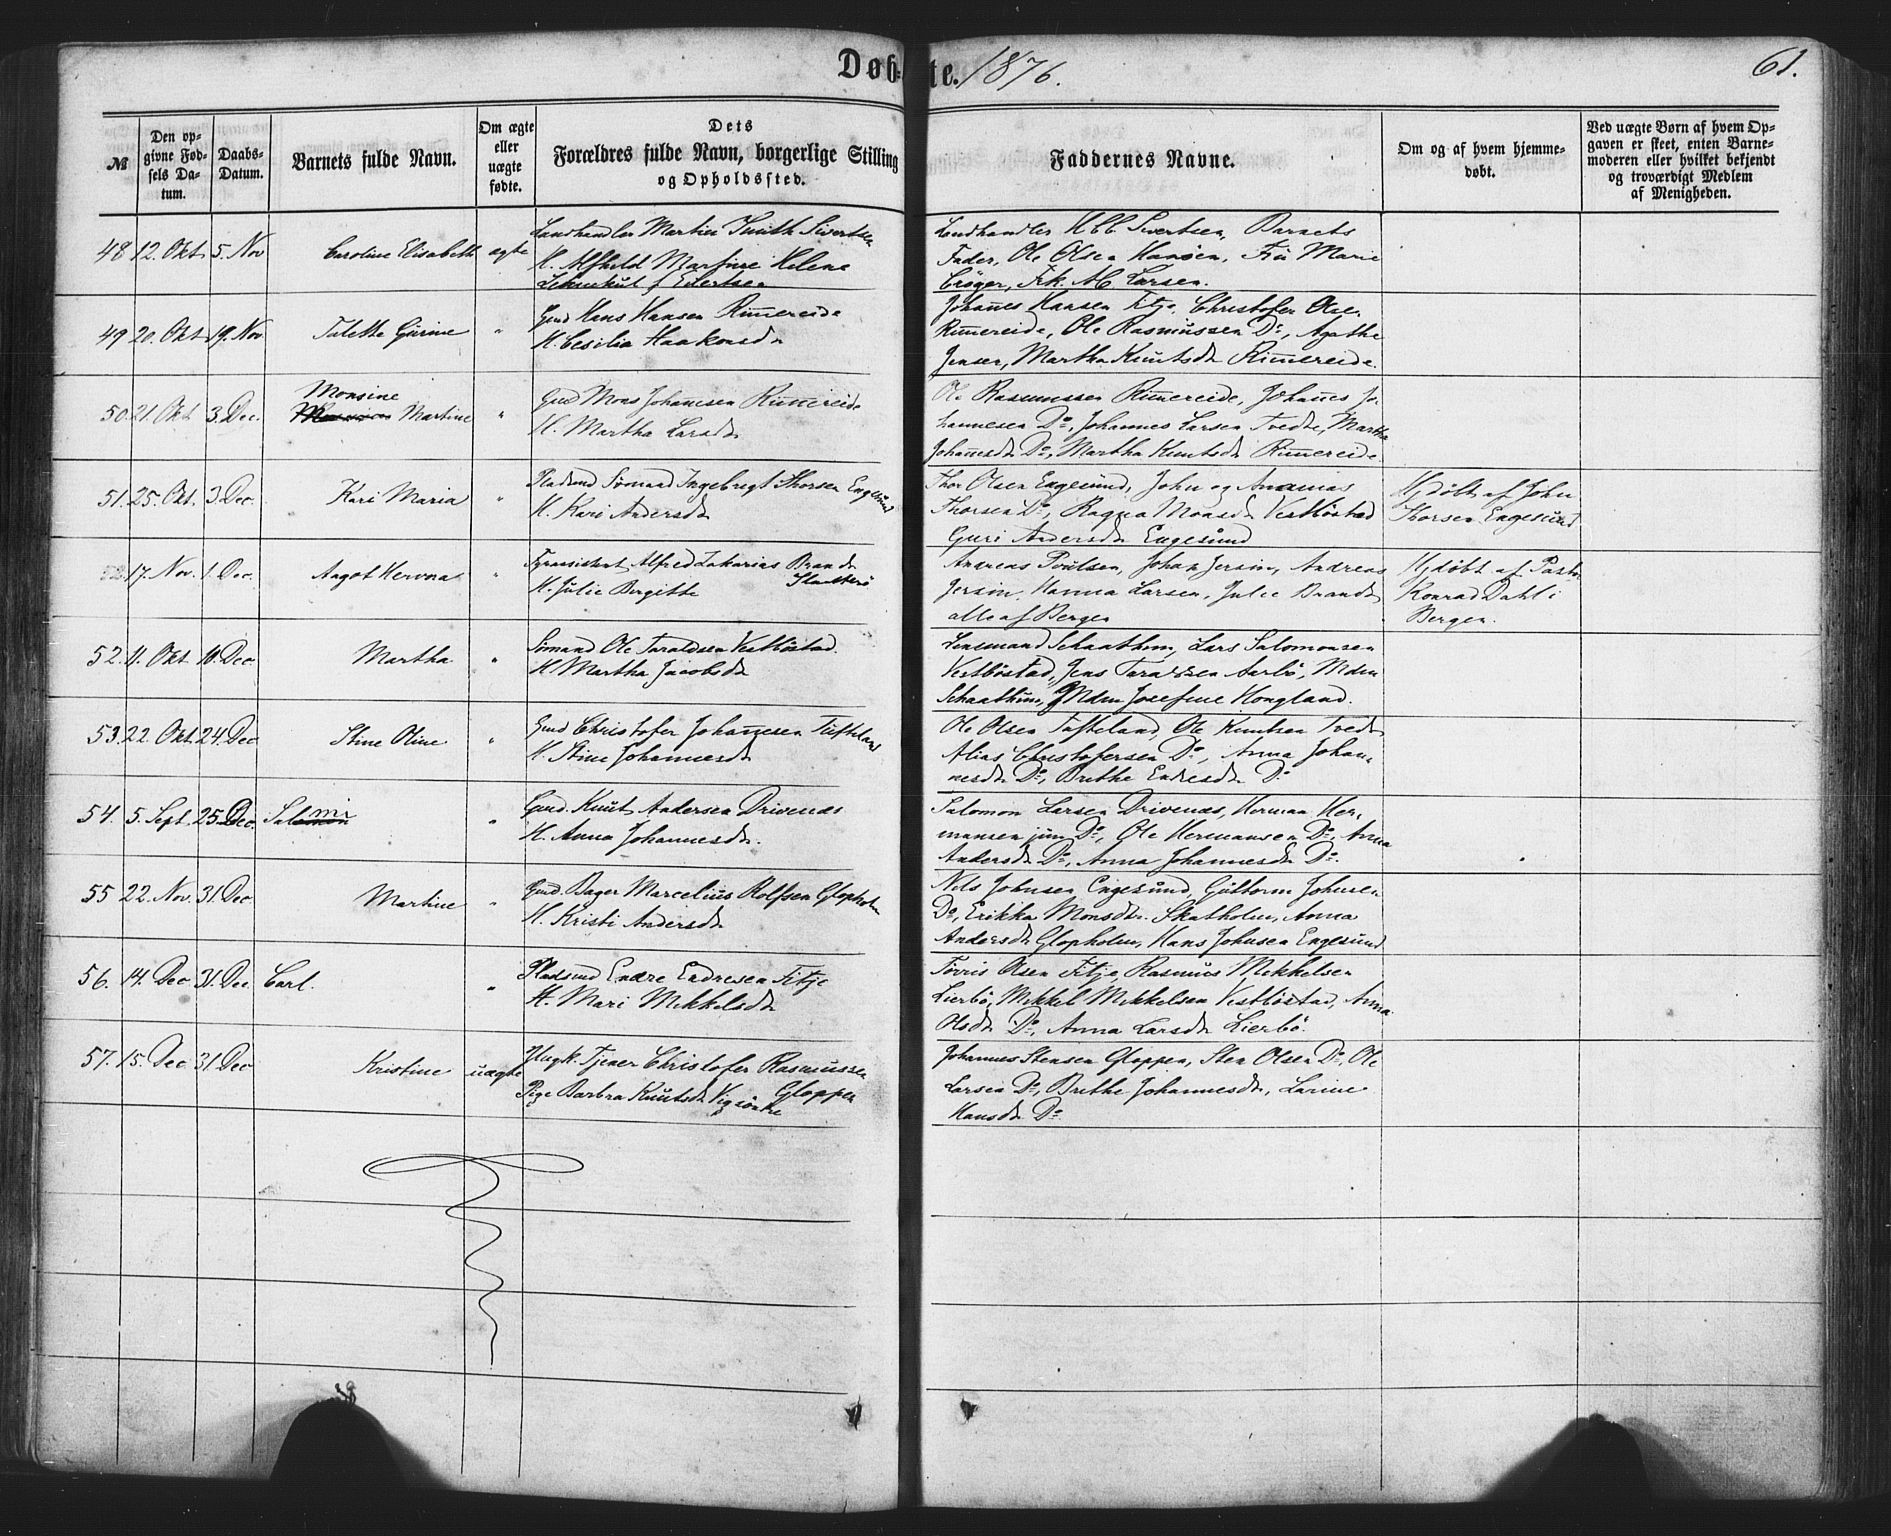 Døb-te. 1876. 61.
№
Den op-
givne Fød-
sels Da-
tum.
Daabs-
Datum.
Barnets fulde Navn.
Om ægte
eller
uægte
fødte.
Dets
Forældres fulde Navn, borgerlige Stilling
og Opholdssted.
Faddernes Navne.
Om og af hvem hjemme-
døbt.
Ved uægte Børn af hvem Op-
gaven er skeet, enten Barne-
moderen eller hvilket bekjendt
og troværdigt Medlem
af Menigheden.
48 12. Okt. 5. Nov Caroline Elisabeth ægte
Landhandler Martin Smith Sivertsen
H. Alfhild Martine Helene
f Eilertsen
Landhandler Sivertsen, Barnets
Fader, Ole Olsen Hansen, Frü Marie
Crøger, Frk. AC Larsen.
49 20. Okt. 19. Nov. Taletta Gurine "
Gmd Hans Hansen Rimereide
H. Cesilia Haakonsdr
Johannes Hansen Fitje, Christofer Olsen
Rimereide, Ole Rasmussen Do, Agathe
Jensen, Martha Knutsdr Rimereide.
50. 21. Okt 3. Dec. Monsine Martine "
Gmd Mons Johannesen Rimereide
H. Martha Larsdr
Ole Rasmussen Rimereide, Johannes Jo-
hannesen Do, Johannes Larsen Tvedte, Martha
Johannesdr Do, Martha Knutsdr Rimereide.
51. 25. Okt. 3. Dec. Kari Maria "
Pladsmd Sømand Ingebregt Thorsen Engesund
H. Kari Andersdr
Thor Olsen Engesund, John og Ananias
Thorsen Do, Ragna Monsdr Vestbøstad
Guri Andersdr Engesund
Hjdøbt af John
Thorsen Engesund
17. Nov. 1. Dec. Aagot Hervora "
Fyrassistent Alfred Zakarias Brandt
H. Julie Birgitte
Andreas Poulsen, Johan Jersin, Andreas
Jersin, Hanna Larsen, Julie Brandt
alle af Bergen
Hjdøbt af Pastor
Konrad Dahl i
Bergen.
52. 11. Okt 10. Dec Martha "
Sømand Ole Taraldsen Vestbøstad.
H. Martha Jacobsdr
Lensmand Schaathun, Lars Salomonsen
Vestbøstad, Jens Taraldsen Aarbø, Mdm
Schaathun, Mdm Josefine Hougland.
53. 22. Okt. 24. Dec Stine Oline "
Gmd Christofer Johannesen Tufteland
H. Stine Johannesdr
Ole Olsen Tufteland, Ole Knutsen Tvedt
Alias Christofersen Do, Anna Johan-
nesdr Do, Brithe Endresdr Do
54. 5. Sept. 25. Dec. Salomon "
Gmd. Knut Andersen Drivenæs
H. Anna Johannesdr.
Salomon Larsen Drivenæs, Herman Her-
mansen jun Do, Ole Hermansen Do, Anna
Andersdr Do, Anna Johannesdr Do.
55 22. Nov. 31. Dec. Martine "
Gmd. Bager Marcelius Rolfsen Glopholm
H. Kristi Andersdr
Nils Johnsen Engesund, Guttorm Johnsen
Do, Erikka Monsdtr. Skatholm, Anna
Andersdr Glopholm, Hans Johnsen Engesund
56. 14. Dec 31. Dec. Carl. "
Pladsmd Endre Endresen Fitje
H. Mari Mikkelsdr
Tørris Olsen Fitje Rasmus Mikkelsen
Lierbø, Mikkel Mikkelsen Vestbøstad, Anna
Olsdr Do, Anna Larsdr Lierbø.
57. 15. Dec 31. Dec Kristine uægte
Ungk. Tjener Christofer Rasmussen
Gloppen
Pige Barbra Knutsdr Vigsønte
Johannes Stensen Gloppen, Sten Olsen Do, Ole
Larsen Do, Brithe Johannesdr, Larine
Hansdr Do